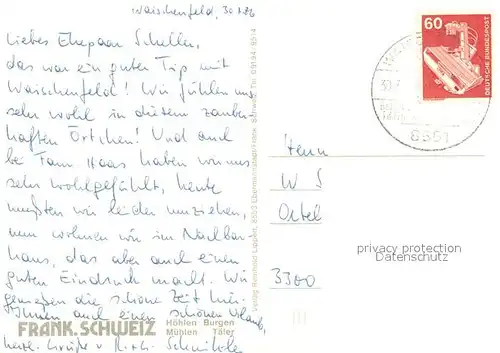 Waischenfeld, 30.7.86
Liebes Ehepaar Scheller,
das war ein guter Tip mit
Waischenfeld! Wir fühlen uns
sehr wohl in diesem zauber-
haften Örtchen! Und auch
bei Fam Haas haben wir uns
sehr wohlgefühlt, heute
mußten wir leider umziehen,
nun wohnen wir im Nachbar-
haus, das aber auch einen
guten Eindruck macht. Wir
genießen die schöne Zeit hier.
Ihnen auch einen schönen Urlaub,
herzl. Grüße v.
FRANK. SCHWEIZ
Höhlen Burgen
Mühlen Täler
Verlag Reinhold Lippert, 8553 Ebermannstadt
60
DEUTSCHE BUNDESPOST
8551
Herrn
W S
3300
privacy protection
Datenschutz